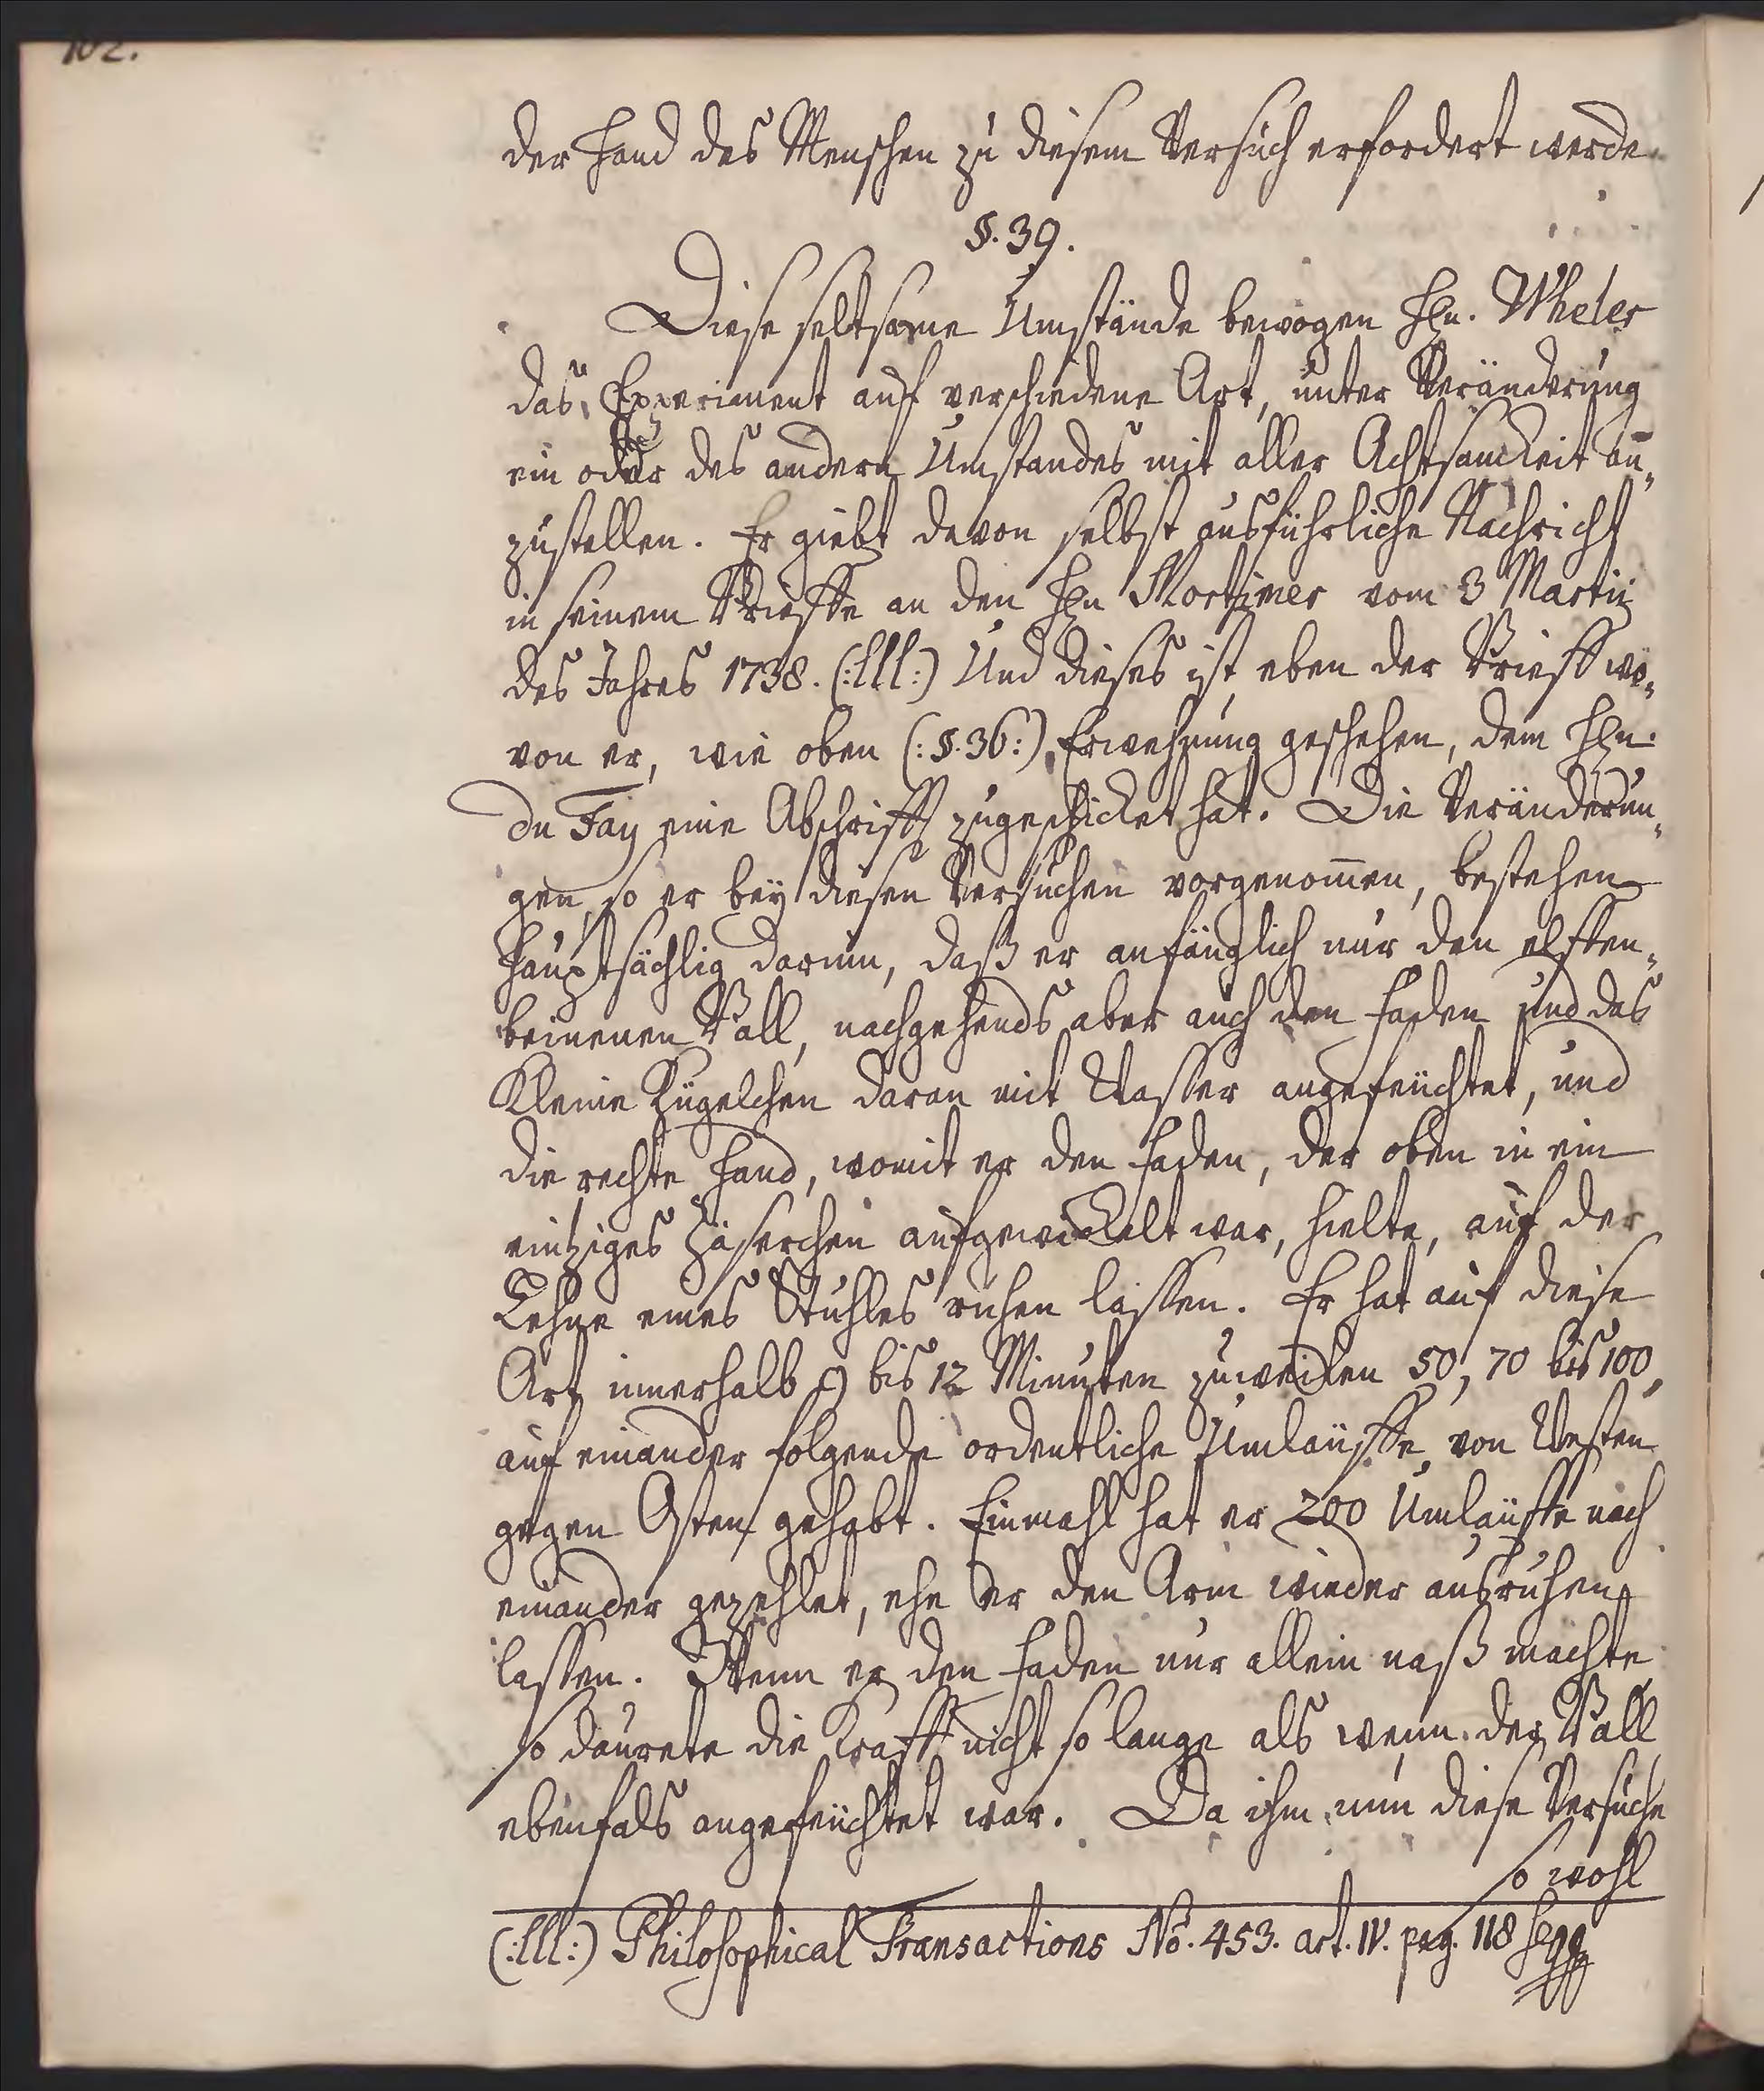 102.
der Hand des Menschen zu diesem Versuch erfordert werde.
§. 39.
Diese seltsame Umstände bewogen Hn. Wheler
das Experiment auf verschiedene Art, unter Veränderung
ein oder des andern Umstandes mit aller Achtsamkeit an-
zustellen. Er giebt davon selbst ausführliche Nachricht
in seinem Brieffe an den Hn Mortimer vom 3 Martii
des Jahres 1738. (:lll:) Und dieses ist eben der Brieff wo-
von er, wie oben (:§. 36:) Erwehnung geschehen, dem Hn.
du Fay eine Abschrifft zugeschicket hat. Die Veränderun-
gen so er bey diesen Versuchen vorgenom̄en, bestehen
hauptsächlig darinn, daß er anfänglich nur den elffen-
beinenen Ball, nachgehends aber auch den Faden und das
kleine Kügelchen daran mit Wasser angefeuchtet, und
die rechte Hand, womit er den Faden, der oben in ein
eintziges Zäserchen aufgewickelt war, hielte, auf der
Lehne eines Stuhles ruhen lassen. Er hat auf diese
Art innerhalb 9 bis 12 Minuten zuweilen 50, 70 bis 100,
auf einander folgende ordentliche Umläuffe von Westen
gegen Osten gehabt. Einmahl hat er 200 Umläuffe nach
einander gezehlet, ehe er den Arm wieder ausruhen
lassen. Wenn er den Faden nur allein naß machte
so daurete die Krafft nicht so lange als wenn der Ball
ebenfals angefeuchtet war. Da ihm nun diese Versuche
so wohl
(:lll:) Philosophical Transactions No. 453. art. IV. pag. 118 seqq